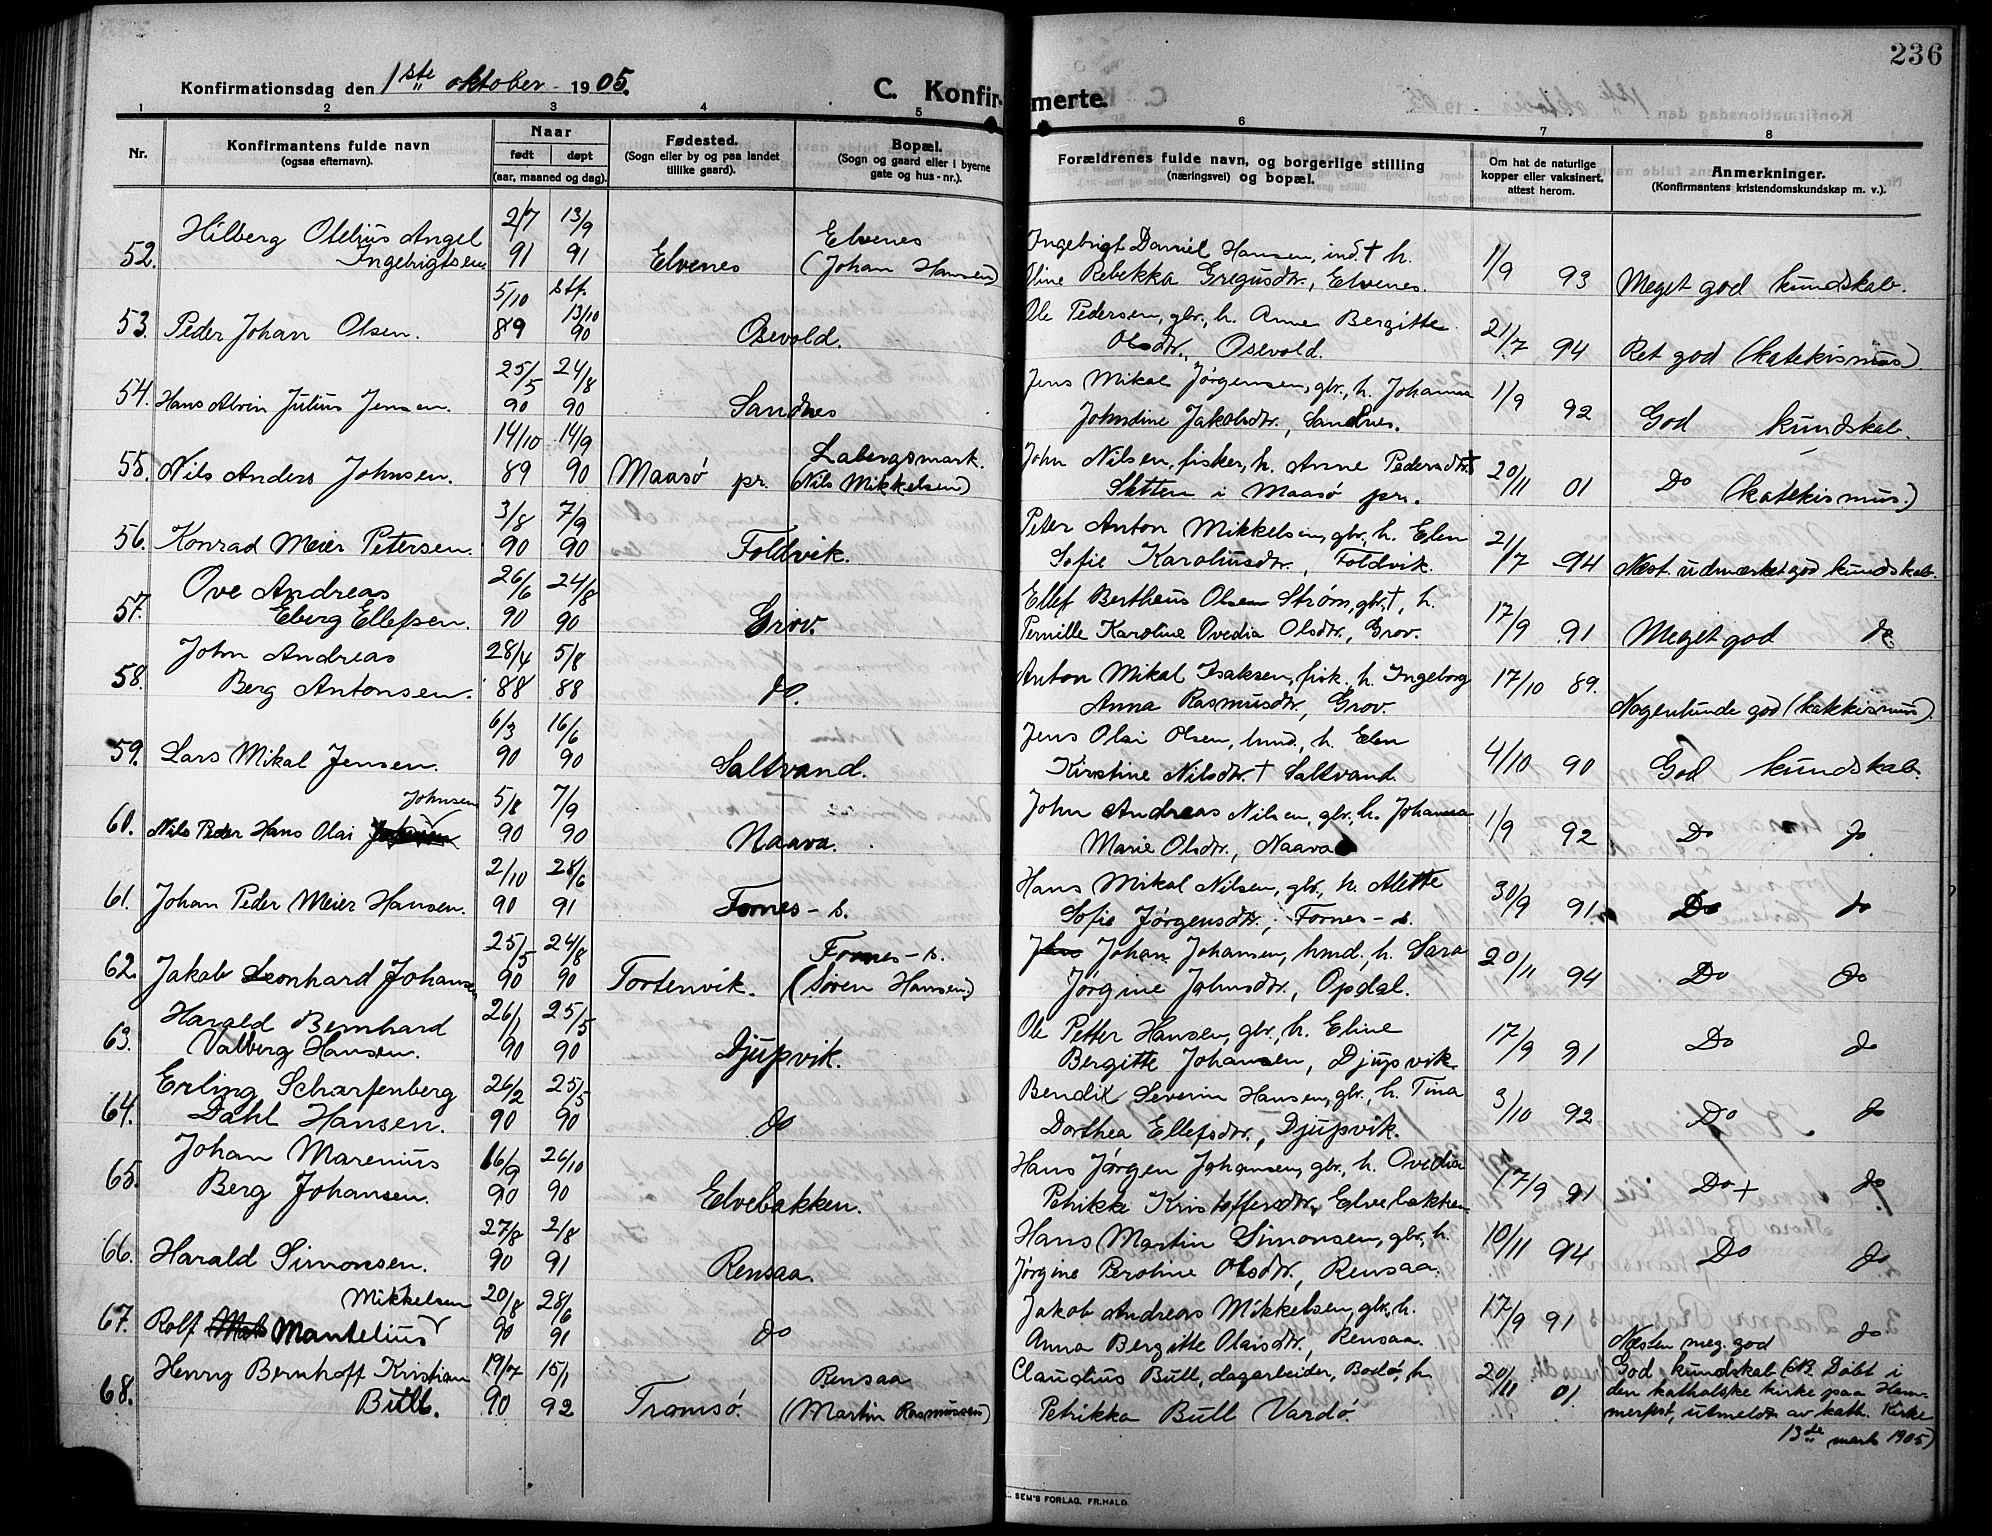 236
Konfirmationsdag den 1ste oktober 1905.
C. Konfirmerte.
1 2 3 4 5 6 7 8
Nr.
Konfirmantens fulde navn
(ogsaa efternavn).
Naar
født døpt
(aar, maaned og dag).
Fødested.
(Sogn eller by og paa landet
tillike gaard).
Bopæl.
(Sogn og gaard eller i byerne
gate og hus-nr.).
Forældrenes fulde navn, og borgerlige stilling
(næringsvei) og bopæl.
Om hat de naturlige
kopper eller vaksinert,
attest herom.
Anmerkninger.
(Konfirmantens kristendomskundskap m. v.).
52. Hilberg Otelius Angel
Ingebrigtsen
2/7 91 13/9 91
Elvenes
Elvenes
(Johan Hansen)
Ingebrigt Daniel Hansen, ind. † h.
Oline Rebekka Gregusdtr., Elvenes.
1/9 93
Meget god kundskab.
53. Peder Johan Olsen.
5/10 89 stf. 13/10 90
Osevold.
Ole Pedersen, gbr., h. Anne Bergitte
Olsdtr., Osevold.
21/7 94
Ret god (katekismus)
54. Hans Alvin Julius Jensen.
25/5 90 24/8 90
Sandnes
Jens Mikal Jørgensen, gbr., h. Johanna
Johndine Jakobsdtr., Sandnes.
1/9 92
God kundskab.
55. Nils Anders Johnsen.
14/10 89 14/9 90
Maasø pr.
Labergsmark.
(Nils Mikkelsen)
John Nilsen, fisker, h. Anne Pedersdtr. †
Sletten i Maasø pr.
20/11 01
Do (katekismus.)
56. Konrad Meier Petersen.
3/8 90 7/9 90
Foldvik.
Peter Anton Mikkelsen, gbr., h. Elen
Sofie Karoliusdtr., Foldvik.
21/7 94
Næst. udmærket god kundskab.
57. Ove Andreas
Eberg Ellefsen.
26/6 90 24/8 90
Grov.
Ellef Bertheus Olsen Strøm, gbr. †, h.
Pernille Karoline Ovedia Olsdtr., Grov.
17/9 91
Meget god do
58. John Andreas
Berg Antonsen.
28/4 88 5/8 88
do.
Anton Mikal Isaksen, fisk. h. Ingeborg
Anna Rasmusdtr., Grov.
17/10 89.
Nogenlunde god (katekismus)
59. Lars Mikal Jensen.
6/3 90 16/6 90
Saltvand.
Jens Olai Olsen, hmd., h. Elen
Kirstine Nilsdtr. † Saltvand.
4/10 90
God kundskab
60. Nils Peder Hans Olai Johnsen
5/8 90 7/9 90
Naava.
John Andreas Nilsen, gbr., h. Johanna
Marie Olsdtr., Naava
1/9 92
Do do
61. Johan Peder Meier Hansen.
2/10 90 28/6 91
Fornes - s.
Hans Mikal Nilsen, gbr., h. Alette
Sofie Jørgensdtr., Fornes - s.
30/9 91
Do do
62. Jakob Leonhard Johansen
25/5 90 24/8 90
Tortenvik.
Fornes - s.
(Søren Hansen)
Johan Johansen, hmd., h. Sara
Jørgine Johnsdtr., Opdal.
20/11 94
Do do
63. Harald Bernhard
Valberg Hansen.
26/1 90 25/5 90
Djupvik.
Ole Petter Hansen, gbr., h. Eline
Bergitte Johansen, Djupvik
17/9 91
Do do
64. Erling Scharfenberg
Dahl Hansen.
26/2 90 25/5 90
do
Bendix Severin Hansen, gbr., h. Tina
Dorthea Ellefsdtr., Djupvik.
3/10 92
Do do
65. Johan Marenius
Berg Johansen.
16/9 90 26/10 90
Elvebakken.
Hans Jørgen Johansen, gbr., h. Ovedia
Petrikke Kristoffersdtr., Elvebakken
17/9 91
Do + do
66. Harald Simonsen.
27/8 90 2/8 91
Rensaa.
Hans Martin Simonsen, gbr., h.
Jørgine Peroline Olsdtr., Rensaa.
10/11 94
Do do
67. Rolf Mantelius Mikkelsen
20/8 90 28/6 91
do
Jakob Andreas Mikkelsen, gbr., h.
Anna Bergitte Olaisdtr., Rensaa.
17/9 91
Næsten meg. god do
68. Henry Bernhoff Kristian
Bull.
19/7 90 15/1 92
Tromsø.
Rensaa
(Martin Rasmussen)
Claudius Bull, dagarbeider, Bodø, h.
Petrikka Bull Vardø.
20/11 01.
God kundskab (NB. Døbt i
den katholske kirke paa Ham-
merfest, utmeldt av kath. Kirke
13de mart 1905)
SEM'S FORLAG, FR.HALD.